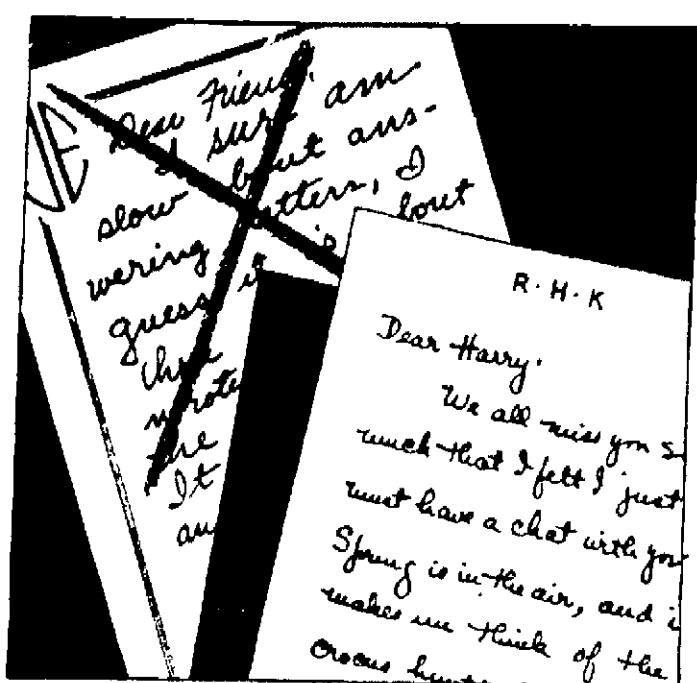 Dear Friend,
I sure am
slow about ans-
wering letters, I
guess it is about
wrote
me
It
R·H·K
Dear Harry.
We all miss you s
much that I felt I just
must have a chat with you
Spring is in the air, and i
makes me think of the
crocus